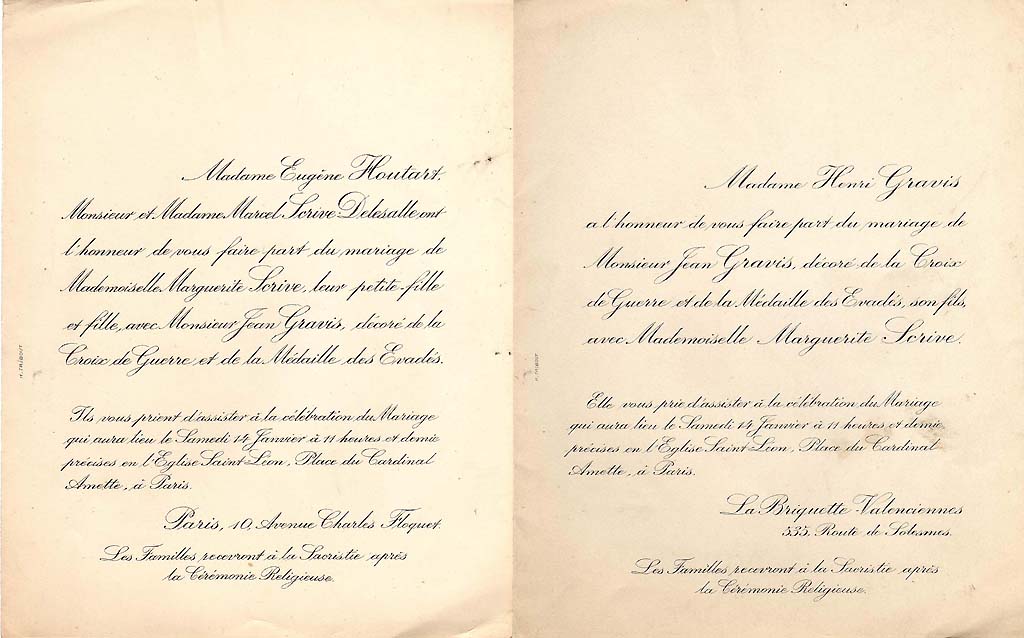 Madame Eugène Houtart.
Monsieur et Madame Marcel Scrive Delesalle ont
l'honneur de vous faire part du mariage de
Mademoiselle Marguerite Scrive, leur petite-fille
et fille, avec Monsieur Jean Gravis, décoré de la
Croix de Guerre et de la Médaille des Evadés.
Ils vous prient d'assister à la célébration du Mariage
qui aura lieu le Samedi 14 Janvier à 11 heures et demie
précises en l'Eglise Saint-Léon, Place du Cardinal
Amette, à Paris.
Paris, 10, Avenue Charles Floquet.
Les Familles recevront à la Sacristie après
la Cérémonie Religieuse.
Madame Henri Gravis
a l'honneur de vous faire part du mariage de
Monsieur Jean Gravis, décoré de la Croix
de Guerre et de la Médaille des Evadés, son fils,
avec Mademoiselle Marguerite Scrive.
Elle vous prie d'assister à la célébration du Mariage
qui aura lieu le Samedi 14 Janvier à 11 heures et demie
précises en l'Eglise Saint Léon, Place du Cardinal
Amette, à Paris.
La Briquette-Valenciennes
535, Route de Solesmes.
Les Familles recevront à la Sacristie après
la Cérémonie Religieuse.